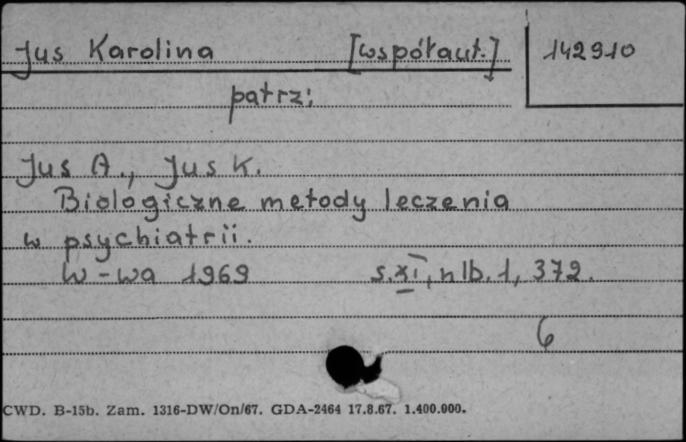 Jus Karolina [współaut.] 142910
patrz:
Jus A., Jus K.
Biologiczne metody leczenia
w psychiatrii.
W-wa 1969 s. XI, nlb. 1, 372.
6
CWD. B-15b. Zam. 1316-DW/On/67. GDA-2464 17.8.67. 1.400.000.